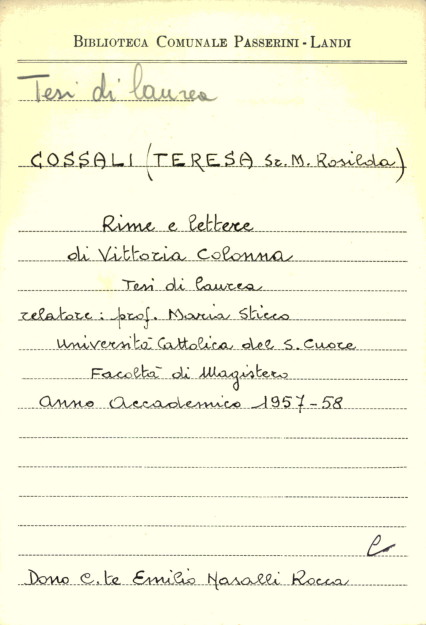 BIBLIOTECA COMUNALE PASSERINI - LANDI
Tesi di laurea
GOSSALI (TERESA Sr. M. Rosilda)
Rime e lettere
di Vittoria Colonna
Tesi di laurea
relatore: prof. Maria Sticco
Università Cattolica del S. Cuore
Facoltà di Magistero
Anno Accademico 1957-58
Dono C.te Emilio Nasalli Rocca